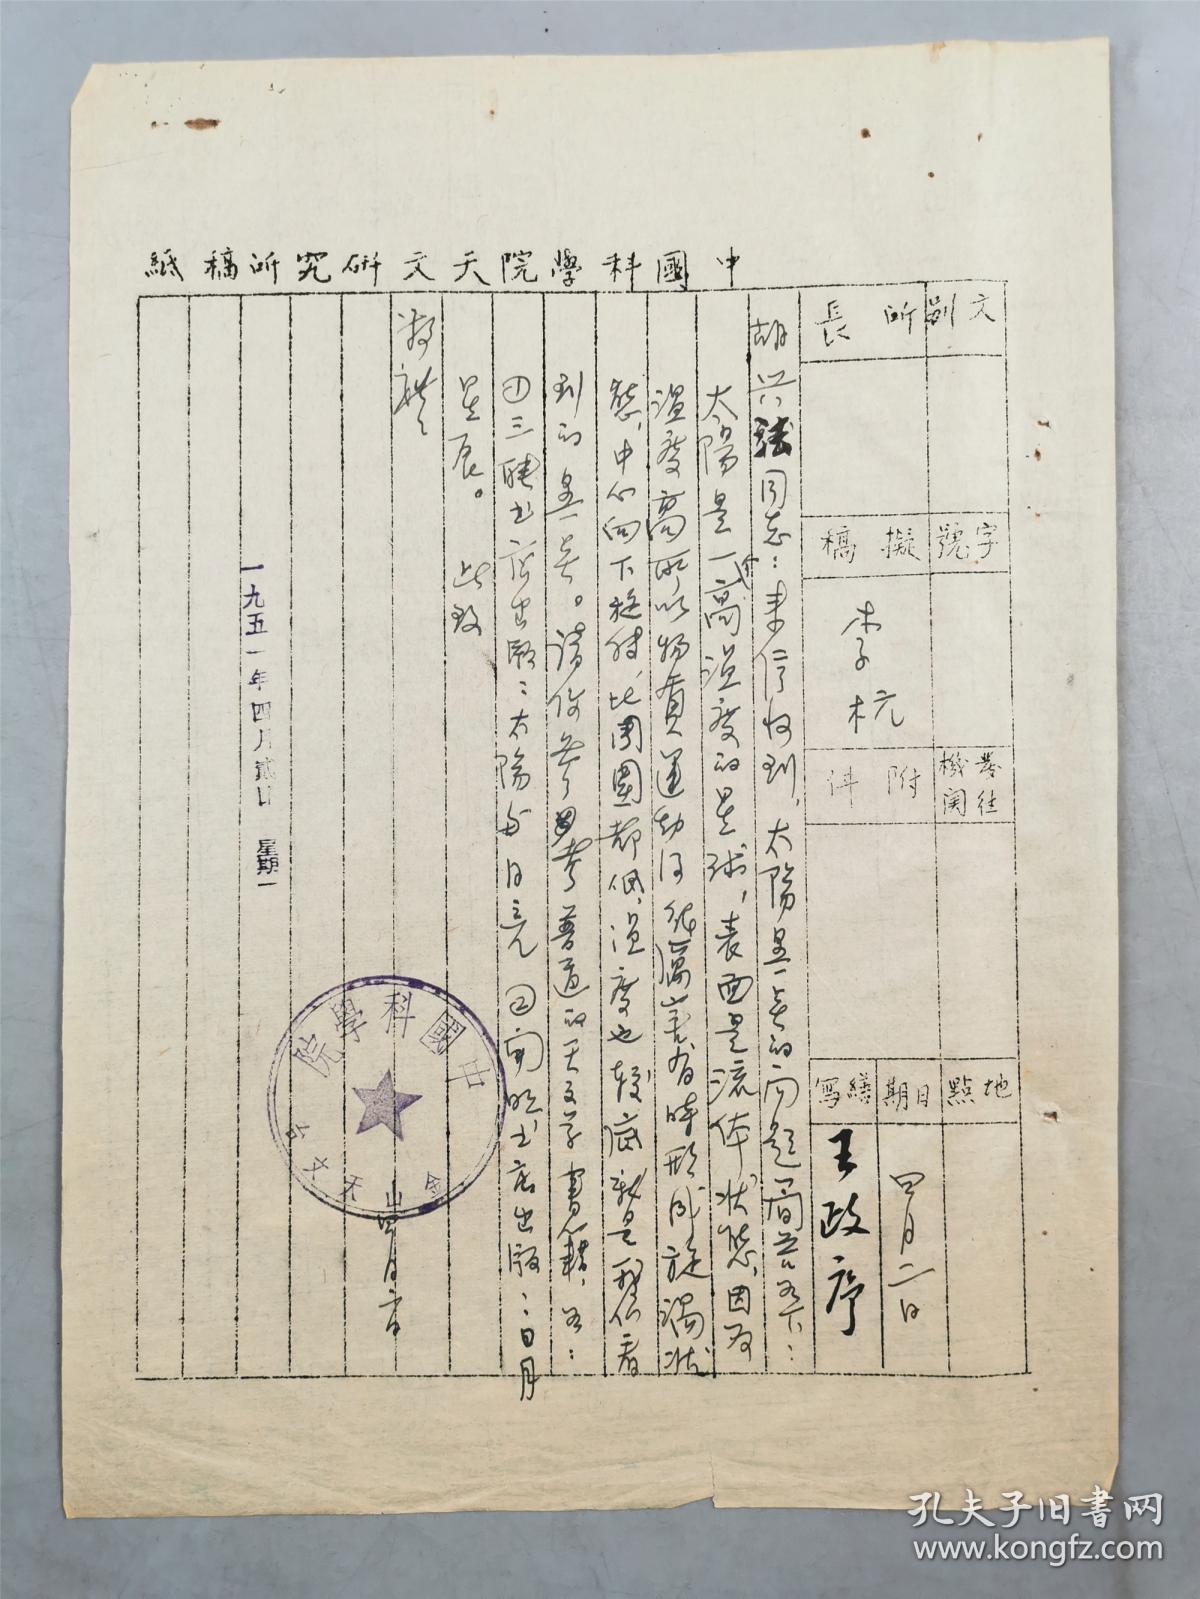 中國科學院天文研究所稿紙
文別
所長
字號
擬稿
李杭
發往機関
附件
地點
日期
四月二日
繕寫
王政序
胡兴 同志：来信收到，太陽黑点的问题簡荅如下：
太陽是一个高温度的星球，表面是流体状態，因为
温度高所以物質運动得很厲害有時形成旋渦状
態，中心向下旋時，比周圍都低，温度也較底就是我們看
到的黑点。請你參考普通的天文学書籍，如：
①三联书店出版：太陽与日 ②開明书店出版：日月
星辰。 此致
敬禮
四月 日
一九五一年四月貳日 星期一
中國科學院
紫金山天文台
孔夫子旧书网
www.kongfz.com